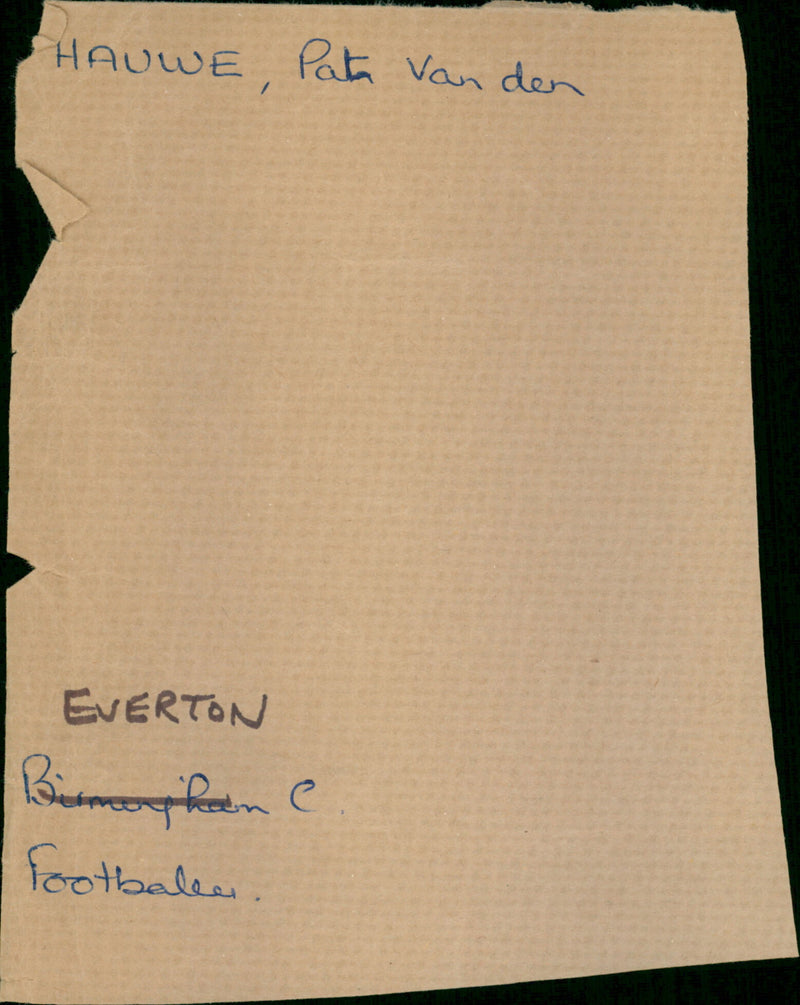 HAUWE, Pat Van den
EVERTON
Birmingham C.
Footballer.